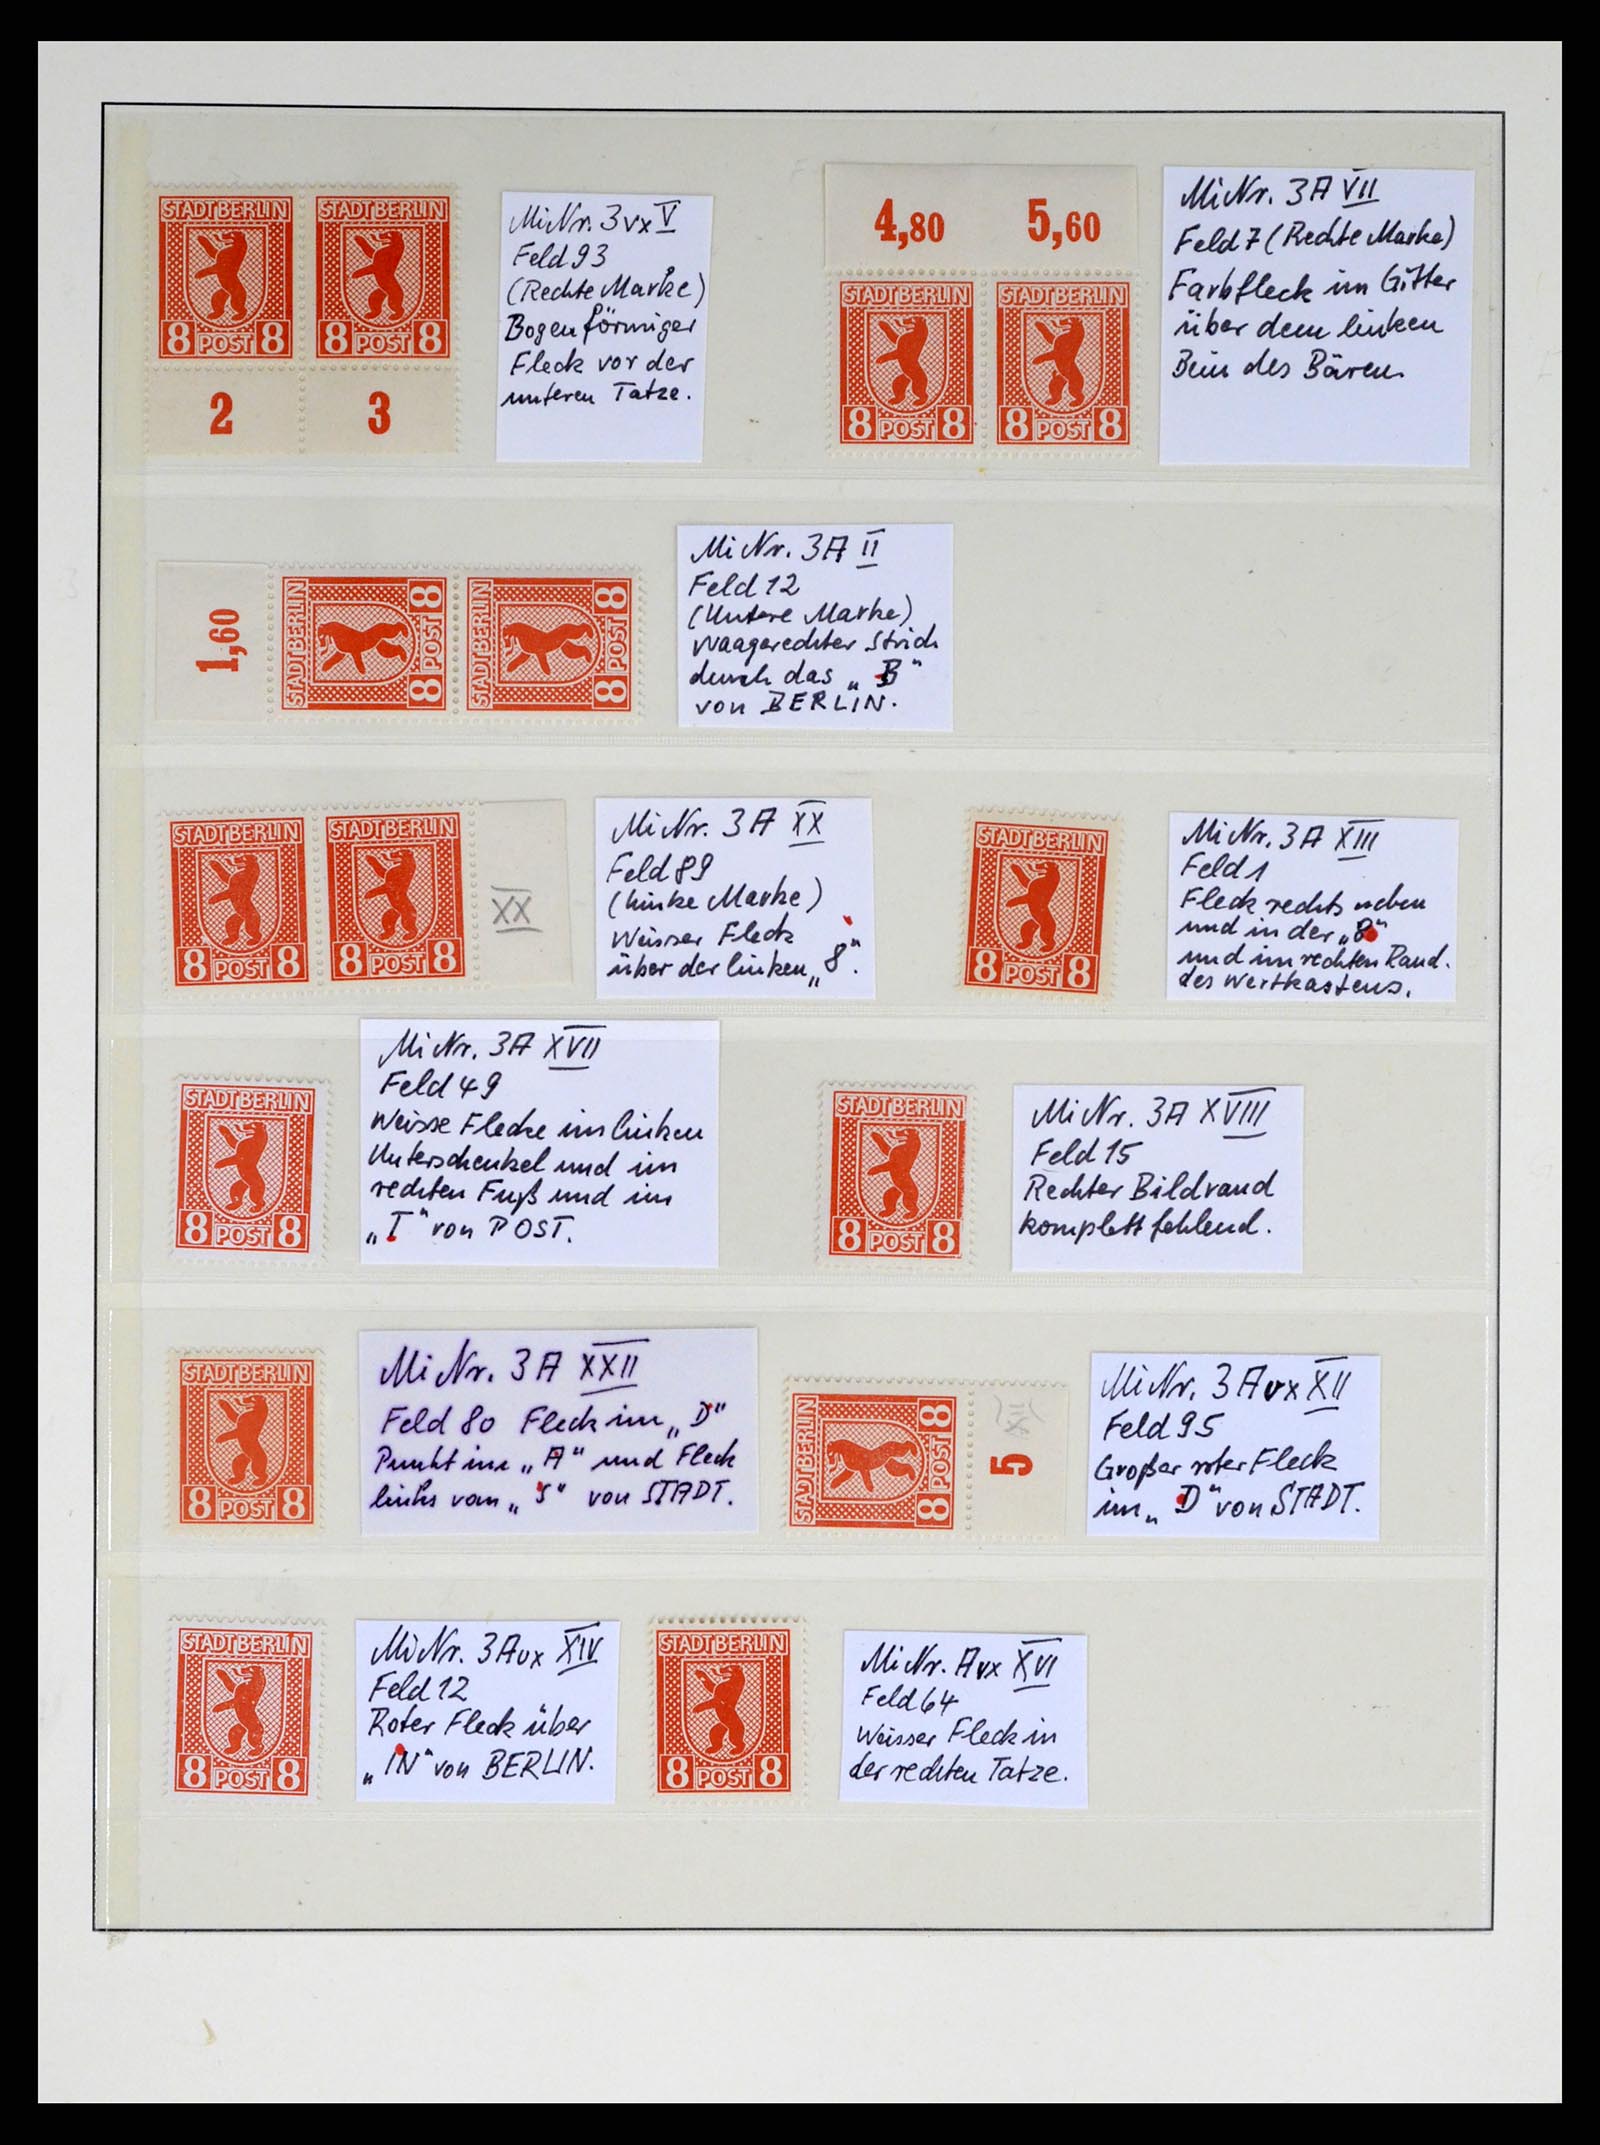 STADTBERLIN STADTBERLIN
8 POST 8 8 POST 8
2 3
Mi Nr. 3vx V
Feld 93
(Rechte Marke)
Bogenförmiger
Fleck vor der
unteren Tatze.
4,80 5,60
STADTBERLIN STADTBERLIN
8 POST 8 8 POST 8
Mi Nr. 3A VII
Feld 7 (Rechte Marke)
Farbfleck im Gitter
über dem linken
Bein des Bären.
1,60
STADTBERLIN
8 POST 8
STADTBERLIN
8 POST 8
Mi Nr. 3A II
Feld 12
(Untere Marke)
Waagerechter Strich
durch das „B“
von BERLIN.
STADTBERLIN STADTBERLIN
8 POST 8 8 POST 8
XX
Mi Nr. 3A XX
Feld 89
(Linke Marke)
Weisser Fleck
über der linken „8“.
STADTBERLIN
8 POST 8
Mi Nr. 3A XIII
Feld 1
Fleck rechts neben
und in der „8“
und im rechten Rand.
des Wertkastens.
STADTBERLIN
8 POST 8
Mi Nr. 3A XVII
Feld 49
Weisse Flecke im linken
Unterschenkel und im
rechten Fuß und im
„T“ von POST.
STADTBERLIN
8 POST 8
Mi Nr. 3A XVIII
Feld 15
Rechter Bildrand
komplett fehlend.
STADTBERLIN
8 POST 8
Mi Nr. 3A XXII
Feld 80 Fleck im „D“
Punkt im „A“ und Fleck
links vom „S“ von STADT.
STADTBERLIN
8 POST 8
5
Mi Nr. 3Avx XII
Feld 95
Großer roter Fleck
im „D“ von STADT.
STADTBERLIN
8 POST 8
Mi Nr. 3Avx XIV
Feld 12
Roter Fleck über
„IN“ von BERLIN.
STADTBERLIN
8 POST 8
Mi Nr. Avx XVI
Feld 64
Weisser Fleck in
der rechten Tatze.